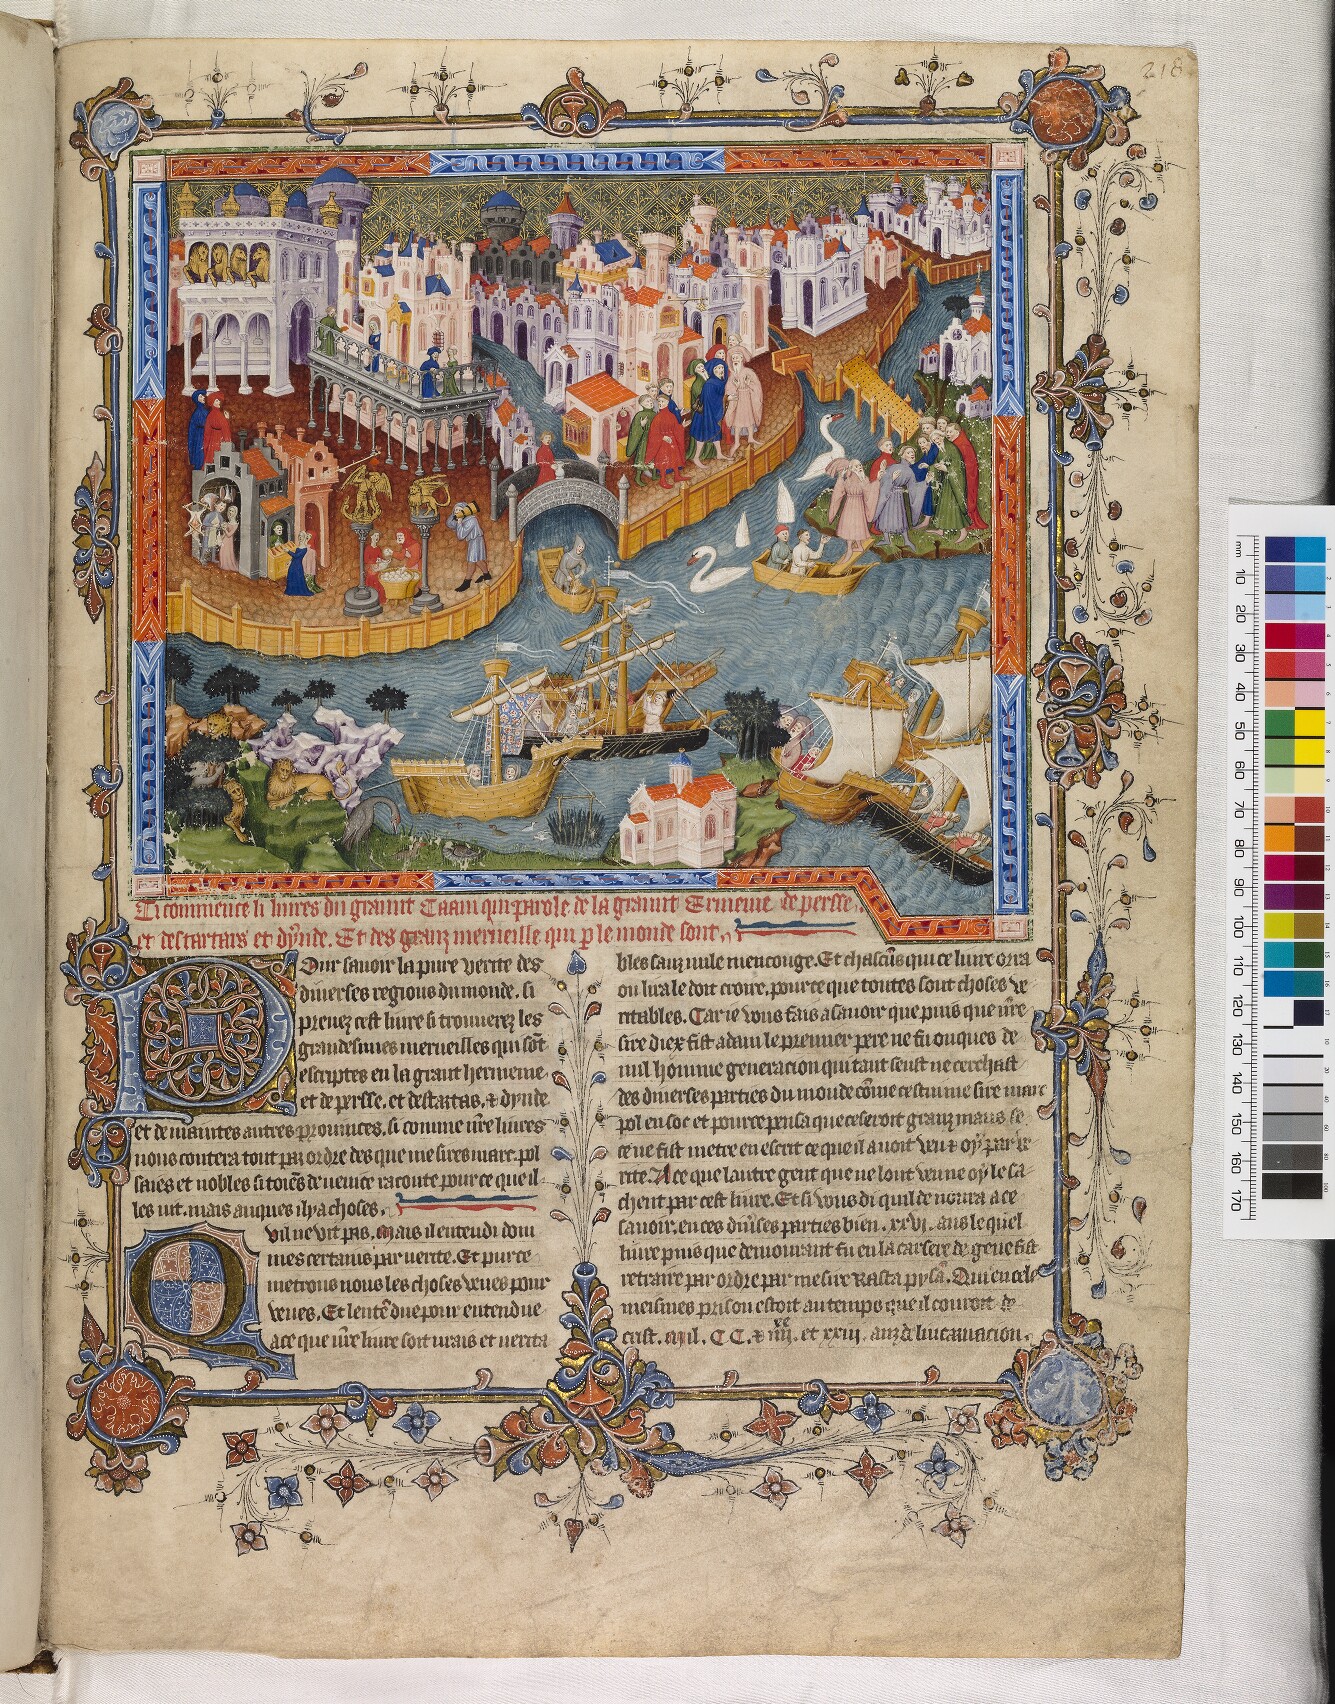 218
Ci commence li liures du graunt Caam qui parole de la graunt Ermenie de persse.
et des tartars et dynde. Et des granz merueille qui p le monde sont.
Pour sauoir la pure verite des
diuerses regions du monde. si
prenez cest liure si trouuerez les
grandesimes merueilles qui sōt
escriptes en la grant hermenie
et de persse. et des tartas. & dynde
et de maintes autres prouinces. si comme nr̄e liures
nous contera tout par ordre des que me sires marc pol
saies et nobles citoiēs de uenice raconte pour ce que il
les uit. mais auques il y a choses.
Quil ne vit pas. Mais il entendi dom
mes certains par verite. Et pur ce
metrons nous les choses veues pour
veues. Et lentēdue pour entendue
a ce que nr̄e liure soit urais et uerita
bles sanz nule mencouge. Et chascūs qui ce liure orra
ou lira le doit croire. pour ce que toutes sont choses ve
ritables. Car ie vous fais a sauoir que puis que nr̄e
sire diex fist adam le premier pere ne fu onques de
nul homme generacion qui tant seust ne cerchast
des diuerses parties du monde cōme cestui me sire marc
pol en sot et pour ce pensa que ce seroit granz maus se
ce ne fist metre en escrit ce que il auoit veu & oy par ve
rite. A ce que lautre gent que ne lont veu ne oy le sa
chent par cest liure. Et si vous di quil demoura a ce
sauoir. en ces diũses parties bien .xxvi. ans le quel
liure puis que demourant fu en la carsere de gene fist
retraire par ordre par mesire Rasta pysā. Qui en cele
meismes prison estoit au temps que il couroit de
crist. Mil. CC. & iiii xx. et xviij. anz de lincarnacion.
mm 10 20 30 40 50 60 70 80 90 100 110 120 130 140 150 160 170